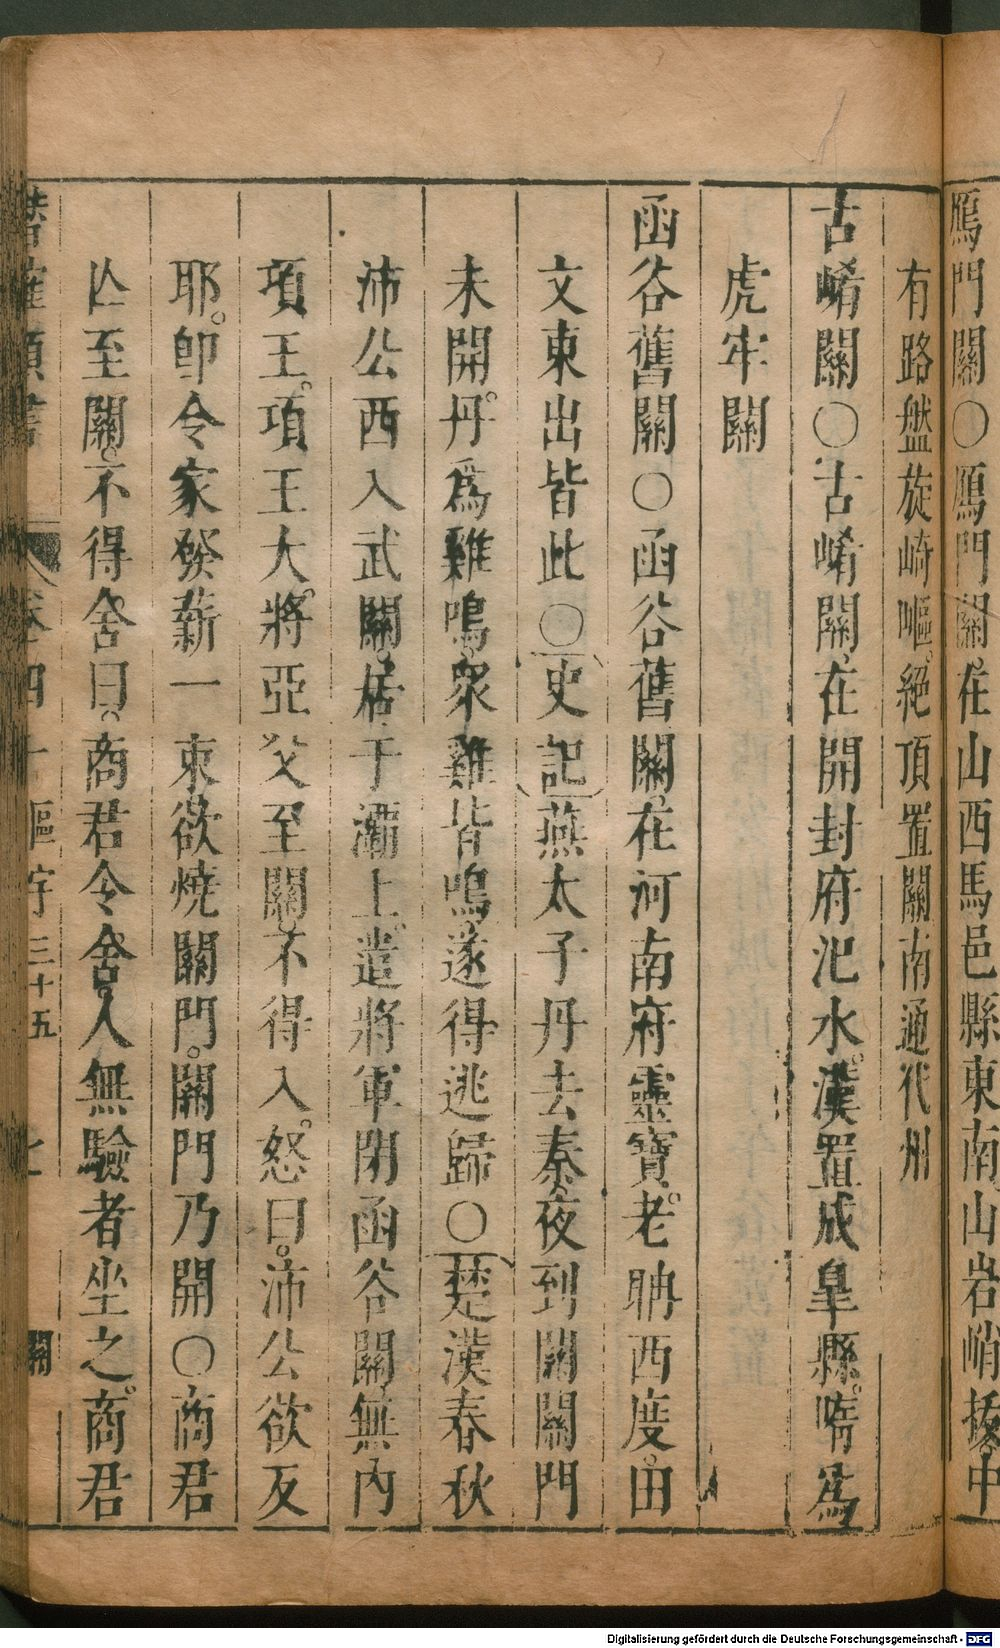 鴈門關○鴈門關在山西馬邑縣東南山岩峭拔中
有路盤旋崎嶇絕頂置關南通代州
古崤關○古崤關在開封府汜水漢置成臯縣隋爲
虎牢關
函谷舊關○函谷舊關在河南府靈寶老聃西度田
文東出皆此○史記燕太子丹去秦夜到關關門
未開丹爲雞鳴衆雞皆鳴遂得逃歸○楚漢春秋
沛公西入武關居于灞上遣將軍閉函谷關無內
項王項王大將亞父至關不得入怒曰沛公欲反
耶卽令家發薪一束欲燒關門關門乃開○商君
亾至關不得舍曰商君令舍人無驗者坐之商君
卷四十 三十五 關
Digitalisierung gefördert durch die Deutsche Forschungsgemeinschaft - DFG